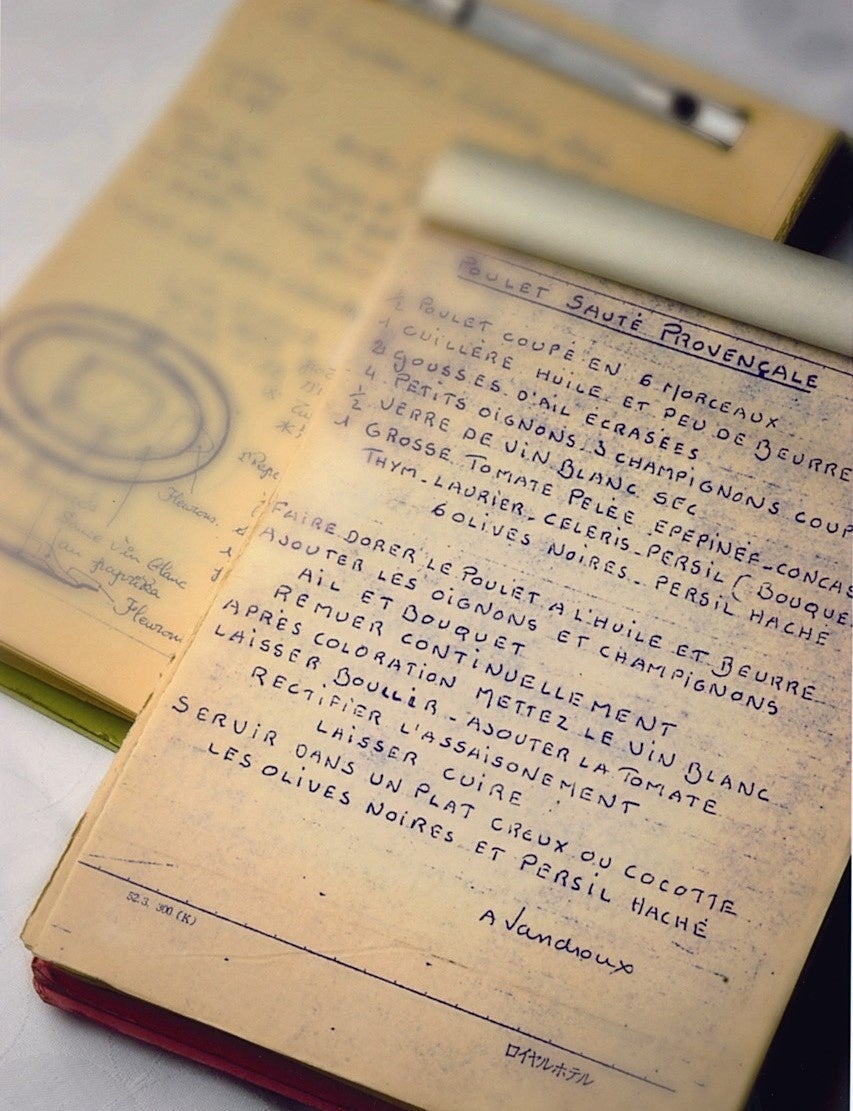 POULET SAUTÉ PROVENÇALE
½ POULET COUPÉ EN 6 MORCEAUX
1 CUILLÈRE HUILE ET PEU DE BEURRE
2 GOUSSES D'AIL ECRASÉES
4 PETITS OIGNONS 3 CHAMPIGNONS COUP
½ VERRE DE VIN BLANC SEC
1 GROSSE TOMATE PELÉE EPEPINÉE-CONCAS
THYM-LAURIER-CELERIS-PERSIL (BOUQUE
6 OLIVES NOIRES-PERSIL HACHÉ
FAIRE DORER LE POULET A L'HUILE ET BEURRE
AJOUTER LES OIGNONS ET CHAMPIGNONS
AIL ET BOUQUET
REMUER CONTINUELLEMENT
APRÈS COLORATION METTEZ LE VIN BLANC
LAISSER BOULLIR-AJOUTER LA TOMATE
RECTIFIER L'ASSAISONEMENT
LAISSER CUIRE
SERVIR DANS UN PLAT CREUX OU COCOTTE
LES OLIVES NOIRES ET PERSIL HACHÉ
A Vandroux
52.3. 300 (K)
ロイヤルホテル
Fleurons.
Sauce Vin blanc
au paprika
Fleurons